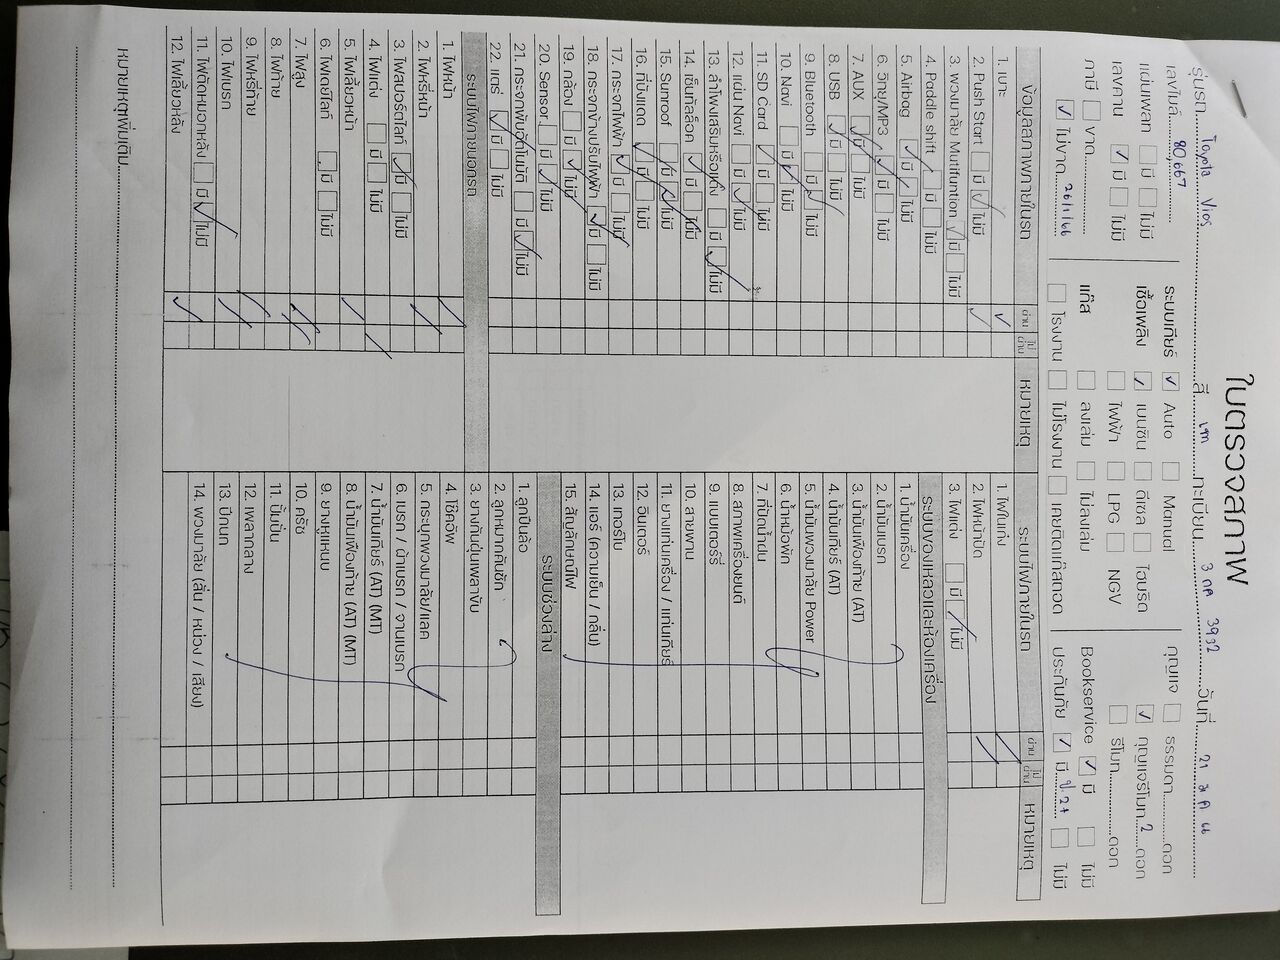 ใบตรวจสภาพ
รุ่นรถ Toyota Vios สี เทา ทะเบียน 3 กค 3932 วันที่ 21 ม.ค 66
เลขไมล์ 80,667 ระบบเกียร์ ✓ Auto Manual กุญแจ ธรรมดา ดอก
แผ่นเพลท มี ไม่มี เชื้อเพลิง ✓ เบนซิน ดีเซล ไฮบริด ✓ กุญแจรีโมท 2 ดอก
เลขคาน ✓ มี ไม่มี ไฟฟ้า LPG NGV รีโมท ดอก
ภาษี ขาด แก๊ส ลงเล่ม ไม่ลงเล่ม Bookservice ✓ มี ไม่มี
✓ ไม่ขาด 26/1/66 โรงงาน ไม่โรงงาน เคยติดแก๊สถอด ประกันภัย ✓ มี ป.2+ ไม่มี
ข้อมูลสภาพภายในรถ ผ่าน ไม่ผ่าน หมายเหตุ
1. เบาะ ✓
2. Push Start มี ✓ ไม่มี ✓
3. พวงมาลัย Mutifuntion ✓ มี ไม่มี
4. Paddle shift มี ไม่มี
5. Airbag ✓ มี ไม่มี
6. วิทยุ/MP3 ✓ มี ไม่มี
7. AUX ✓ มี ไม่มี
8. USB ✓ มี ไม่มี
9. Bluetooth มี ✓ ไม่มี
10. Navi มี ✓ ไม่มี
11. SD Card ✓ มี ไม่มี
12. แผ่น Navi มี ✓ ไม่มี
13. ลำโพงเสริมหรือแต่ง มี ✓ ไม่มี
14. เซ็นทัลล็อค ✓ มี ไม่มี
15. Sunroof มี ✓ ไม่มี
16. ที่บังแดด ✓ มี ไม่มี
17. กระจกไฟฟ้า ✓ มี ไม่มี
18. กระจกข้างปรับไฟฟ้า ✓ มี ไม่มี
19. กล้อง มี ✓ ไม่มี
20. Sensor มี ✓ ไม่มี
21. กระจกพับอัตโนมัติ มี ✓ ไม่มี
22. แตร ✓ มี ไม่มี
ระบบไฟภายนอกรถ
1. ไฟหน้า ✓
2. ไฟหรี่หน้า ✓
3. ไฟสปอร์ตไลท์ ✓ มี ไม่มี
4. ไฟแต่ง มี ไม่มี ✓
5. ไฟเลี้ยวหน้า ✓
6. ไฟเดย์ไลท์ มี ไม่มี
7. ไฟสูง ✓
8. ไฟท้าย ✓
9. ไฟหรี่ท้าย ✓
10. ไฟเบรก ✓
11. ไฟตัดหมอกหลัง มี ✓ ไม่มี
12. ไฟเลี้ยวหลัง ✓
ระบบไฟภายในรถ ผ่าน ไม่ผ่าน หมายเหตุ
1. ไฟในเก๋ง ✓
2. ไฟหน้าปัด ✓
3. ไฟแต่ง มี ✓ ไม่มี
ระบบของเหลวและห้องเครื่อง
1. น้ำมันเครื่อง
2. น้ำมันเบรก
3. น้ำมันเฟืองท้าย (AT)
4. น้ำมันเกียร์ (AT)
5. น้ำมันพวงมาลัย Power
6. น้ำหม้อพัก
7. ที่ปัดน้ำฝน
8. สภาพเครื่องยนต์
9. แบตเตอร์รี่
10. สายพาน
11. ยางแท่นเครื่อง / แท่นเกียร์
12. อินเตอร์
13. เทอร์โบ
14. แอร์ (ความเย็น / กลิ่น)
15. สัญลักษณ์ไฟ
ระบบช่วงล่าง
1. ลูกปืนล้อ
2. ลูกหมากคันชัก
3. ยางกันฝุ่นเพลาขับ
4. โช๊คอัพ
5. กระบุกพวงมาลัย/แลค
6. เบรก / ผ้าเบรก / จานเบรก
7. น้ำมันเกียร์ (AT) (MT)
8. น้ำมันเฟืองท้าย (AT) (MT)
9. ยางหูแหนบ
10. ครัช
11. ปั้มปั่น
12. เพลากลาง
13. ปีกนก
14. พวงมาลัย (ลื่น / หน่วง / เสียง)
หมายเหตุเพิ่มเติม